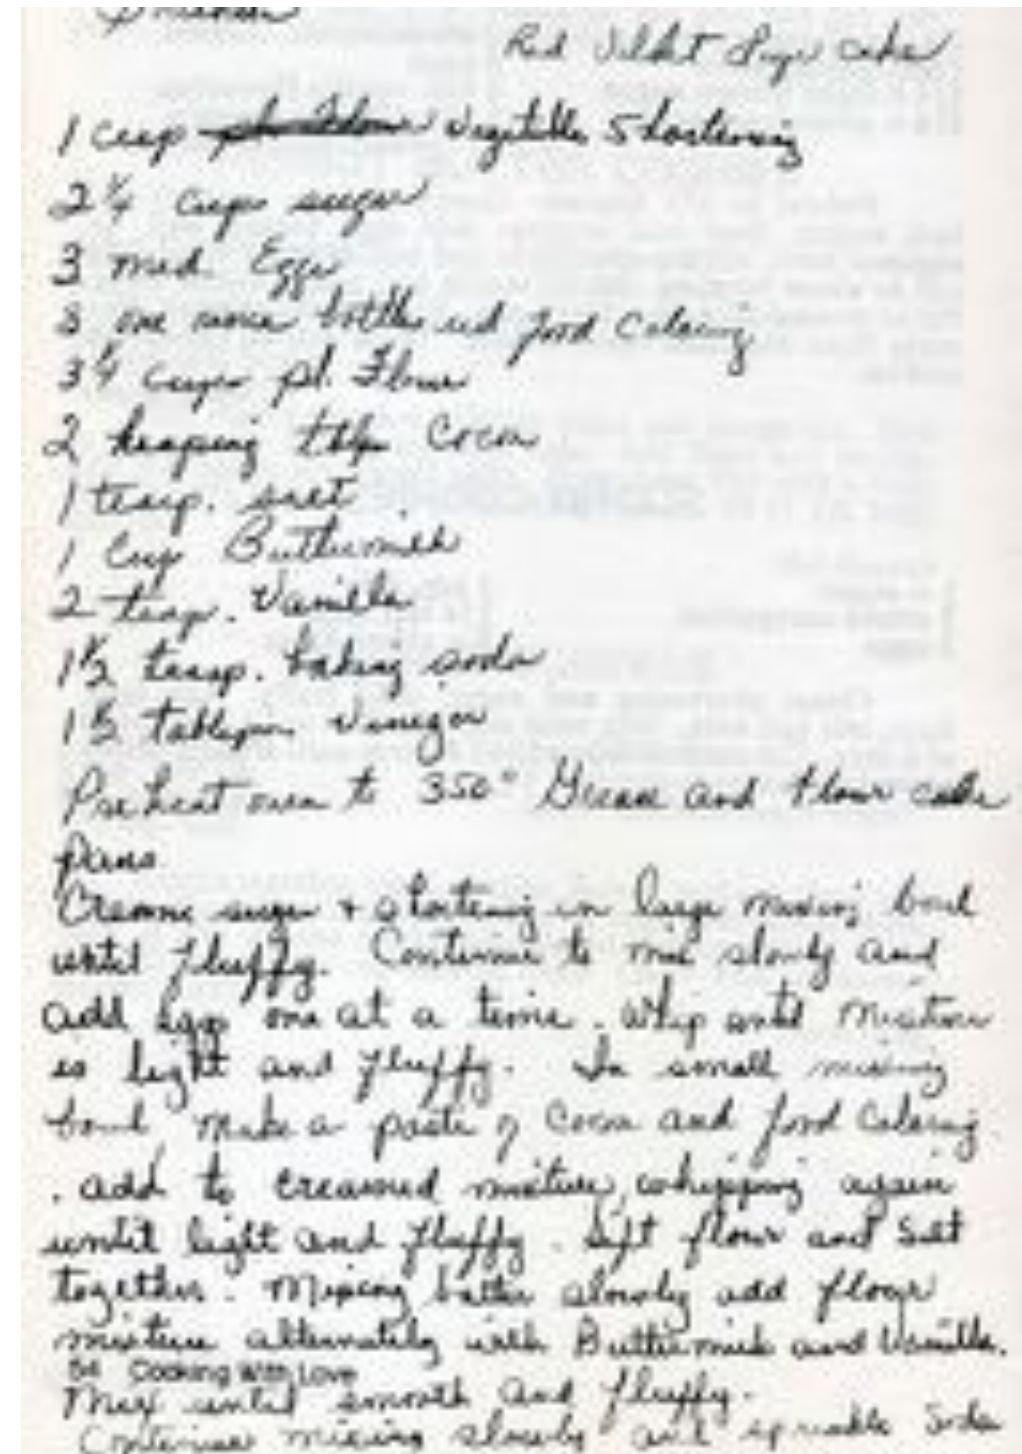 Red Velvet Layer cake
1 cup vegetable Shortening
2 1/4 cups sugar
3 med. Eggs
3 one ounce bottles red food Coloring
3 1/4 cups pl. Flour
2 heaping tbls Cocoa
1 teasp. salt
1 Cup Buttermilk
2 teasp. Vanilla
1 1/2 teasp. baking soda
1 1/2 tablespn Vinegar
Preheat oven to 350° Grease and flour cake
pans
Creame sugar + shortening in large mixing bowl
until fluffy. Continue to mix slowly and
add eggs one at a time. Whip until mixture
is light and fluffy. In small mixing
bowl, make a paste of Cocoa and food Coloring
. add to creamed mixture, whipping again
until light and fluffy. Sift flour and salt
together. Mixing batter slowly add flour
mixture alternately with Buttermilk and Vanilla.
54 Cooking With Love
Mix until smooth and fluffy.
Continue mixing slowly and sprinkle Soda